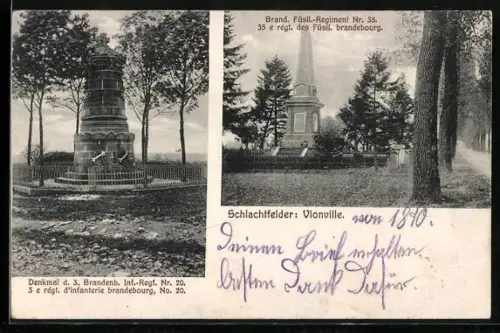 Brand. Füsil.-Regiment Nr. 35.
35 e régt. des Füsil. brandebourg.
Schlachtfelder: Vionville. von 1870.
Deinen Brief erhalten
besten Dank dafür.
Denkmal d. 3. Brandenb. Inf.-Regt. Nr. 20.
3 e régt. d'infanterie brandebourg, No. 20.